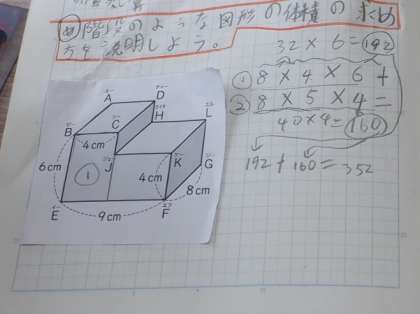 問階段のような図形の体積の求め
方を説明しよう。
32×6=192
① 8×4×6+
② 8×5×4=
40×4=160
192+160=352
A
D
H
L
B
C
4cm
J
K
G
6cm
①
4cm
8cm
E
F
9cm